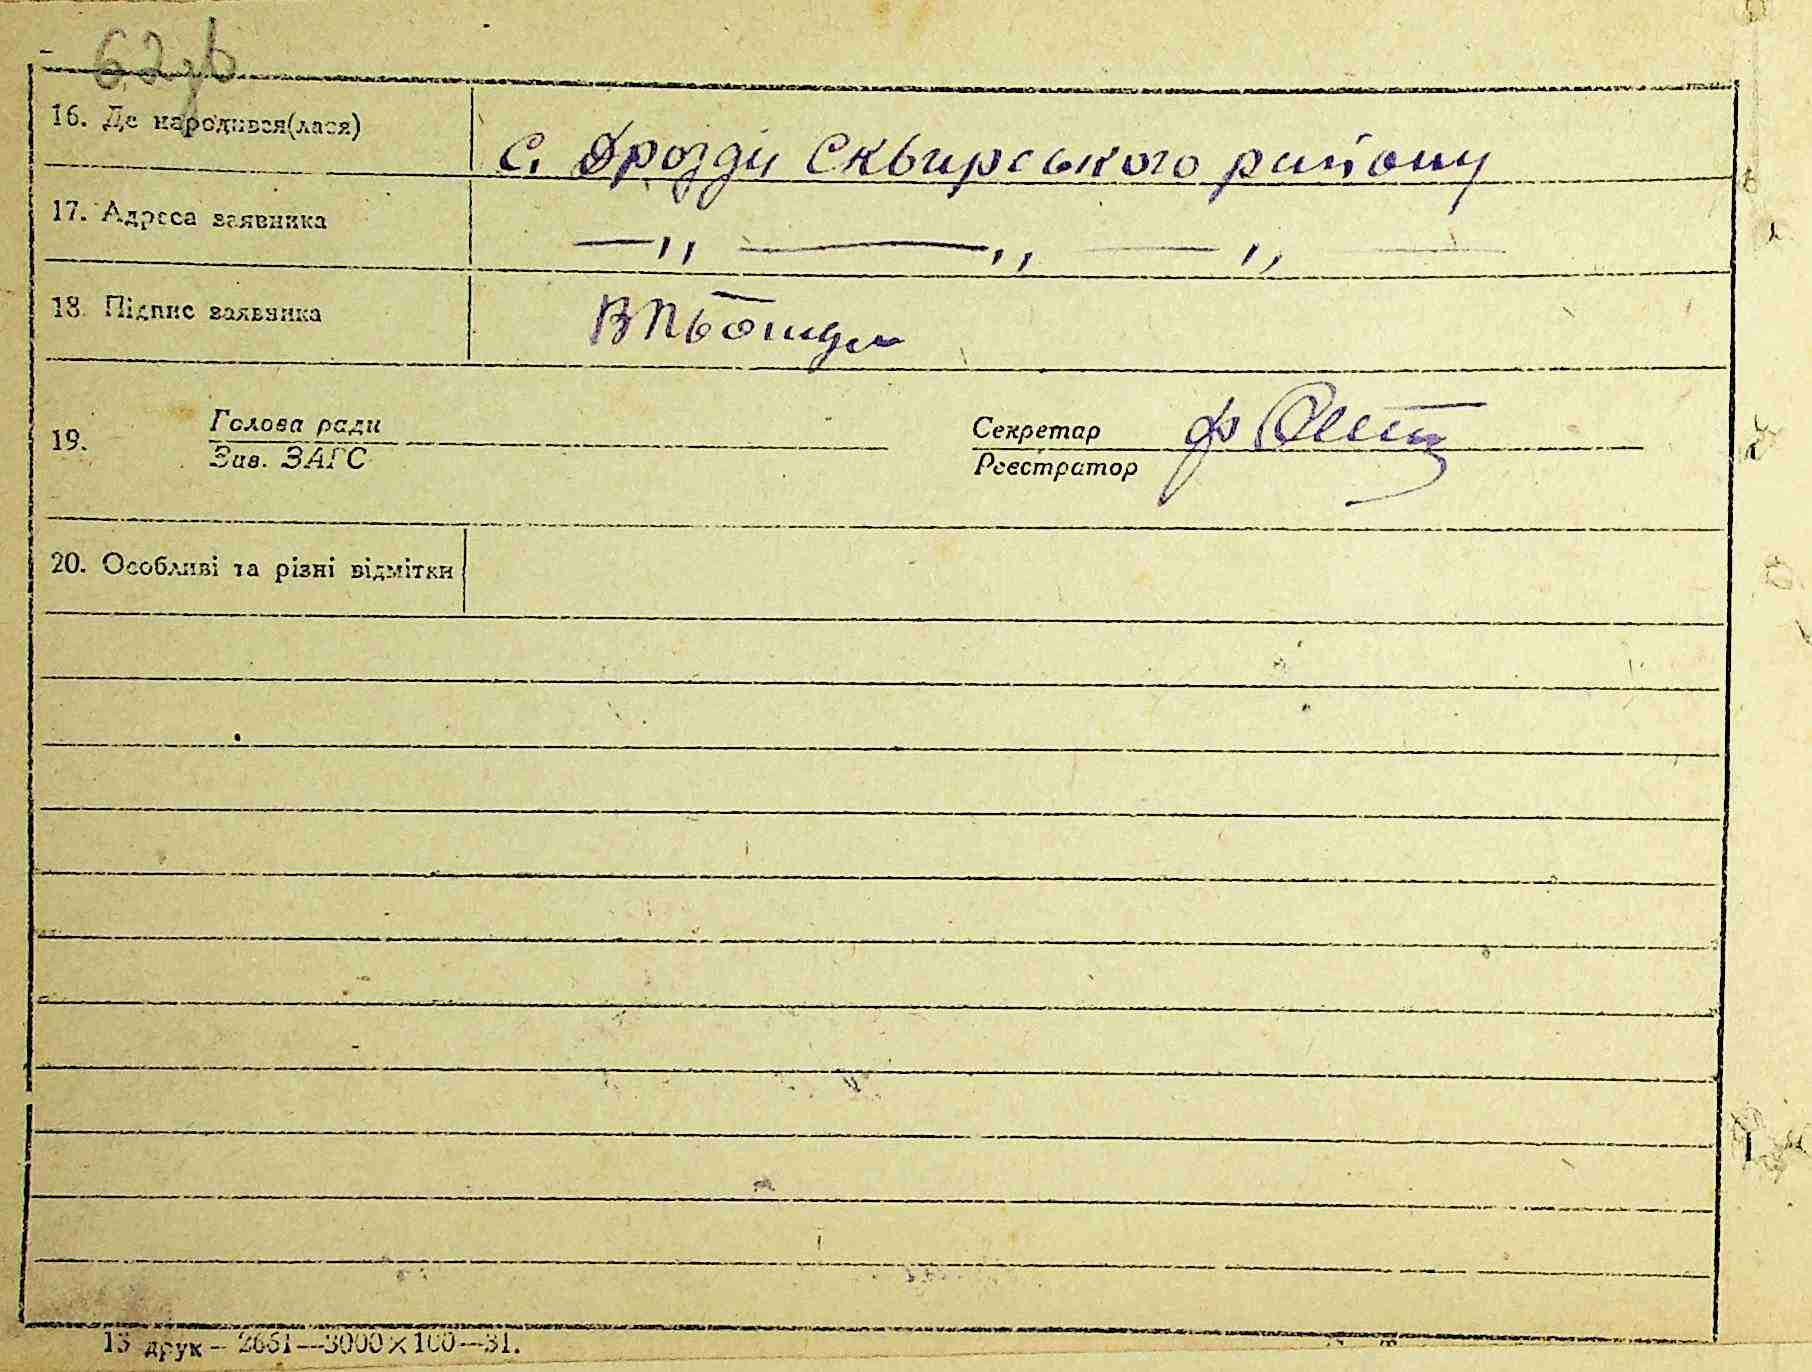 62зв
16. Де народився(лася)
с. Дрозди Сквирського району
17. Адреса заявника
—„ — „ — „ —
18. Підпис заявника
19.
Голова ради
Зав. ЗАГС
Секретар
Реєстратор
20. Особливі та різні відмітки
13 друк – 2661—3000×100—31.